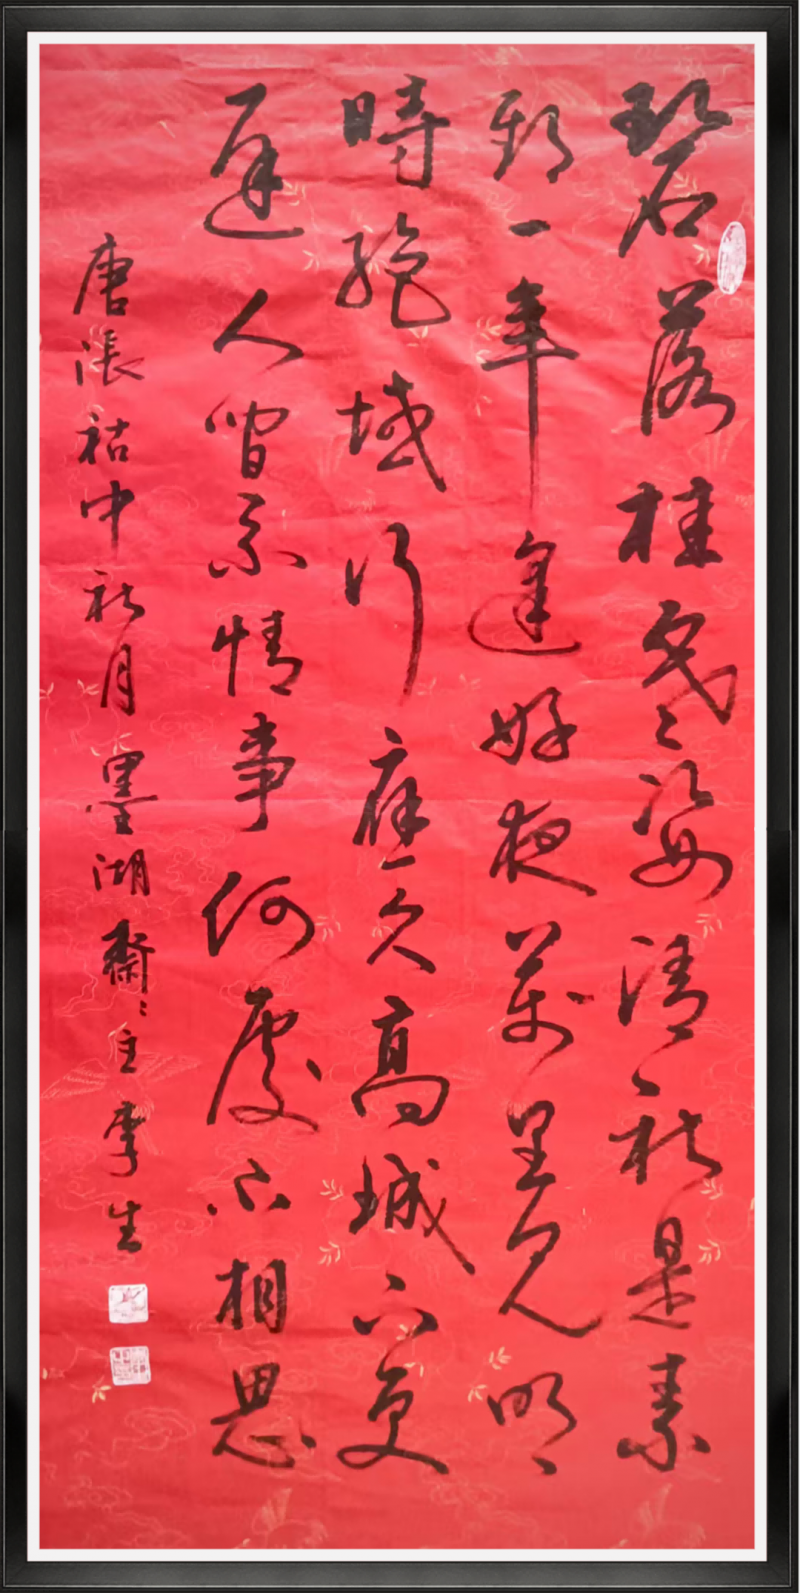 碧落桂含姿清秋是素
期一年逢好夜萬里見明
時絕域行應久高城下更
遲人間系情事何處不相思
唐張祜中秋月墨湖齋主李生